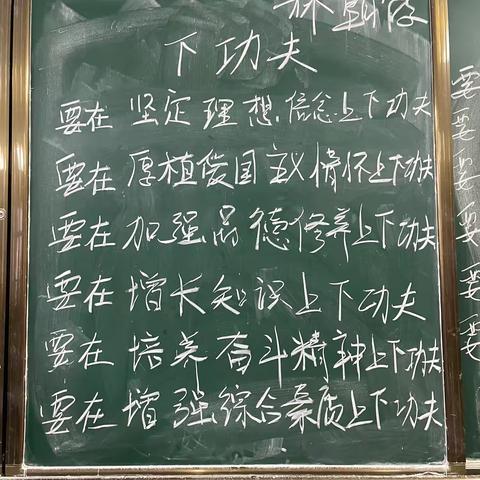 下功夫
要在 坚定理想信念上下功夫
要在 厚植爱国主义情怀上下功夫
要在 加强品德修养上下功夫
要在 增长知识上下功夫
要在 培养奋斗精神上下功夫
要在 增强综合素质上下功夫
要
要
要
要
要
要